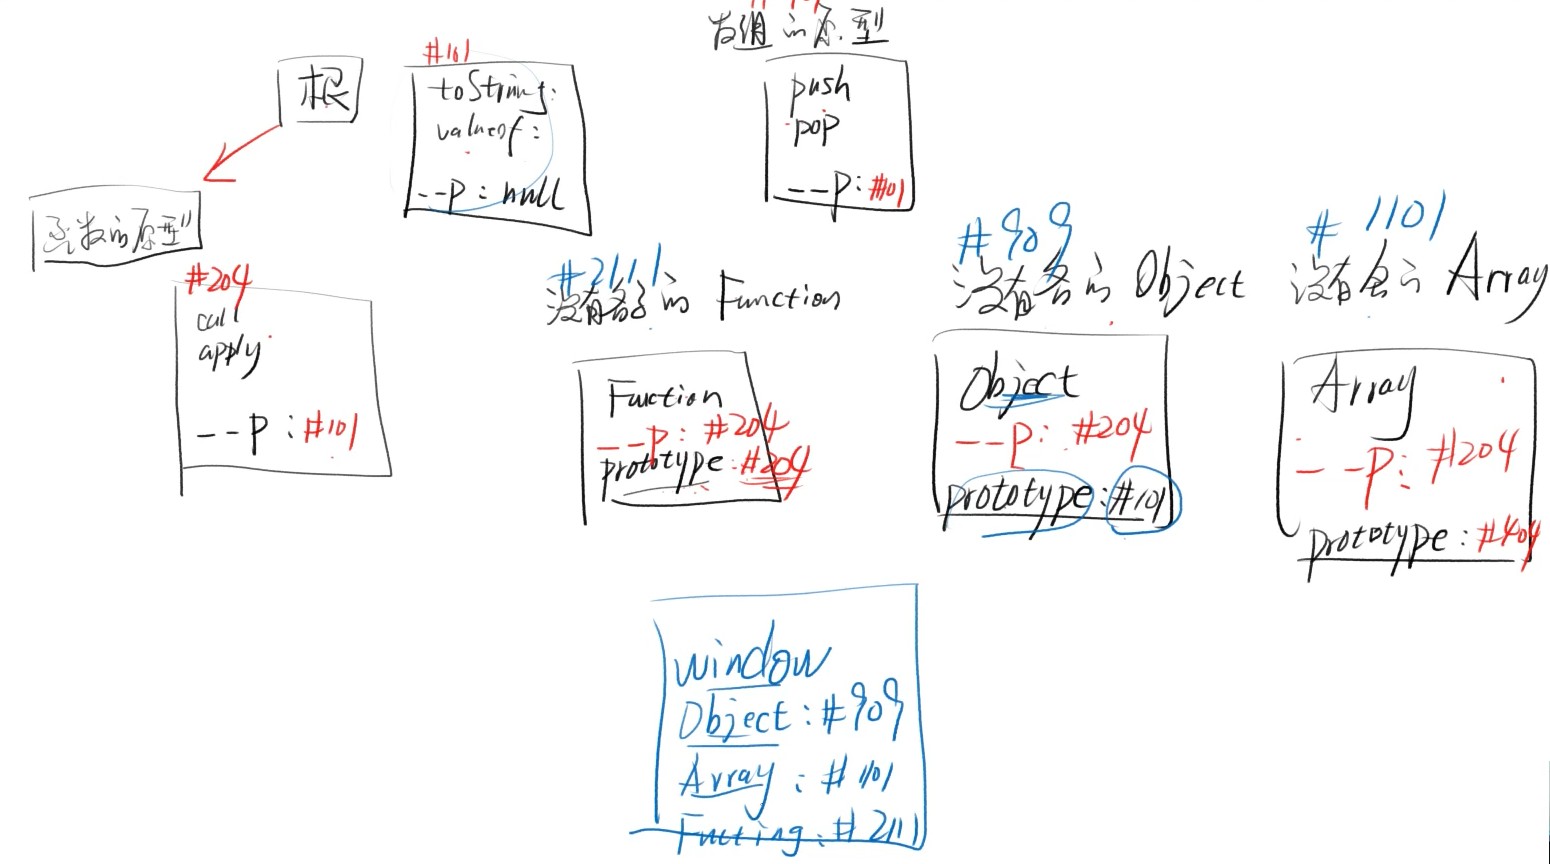 数组的原型
根
#101
toString:
valueof:
--P: null
push
pop
--P: #101
函数的原型
#204
call
apply
--P: #101
#2111
没有名字的 Function
Function
--P: #204
prototype: #204
#909
没有名的 Object
Object
--P: #204
prototype: #101
#1101
没有名的 Array
Array
--P: #204
prototype: #404
window
Object: #909
Array: #1101
#2111